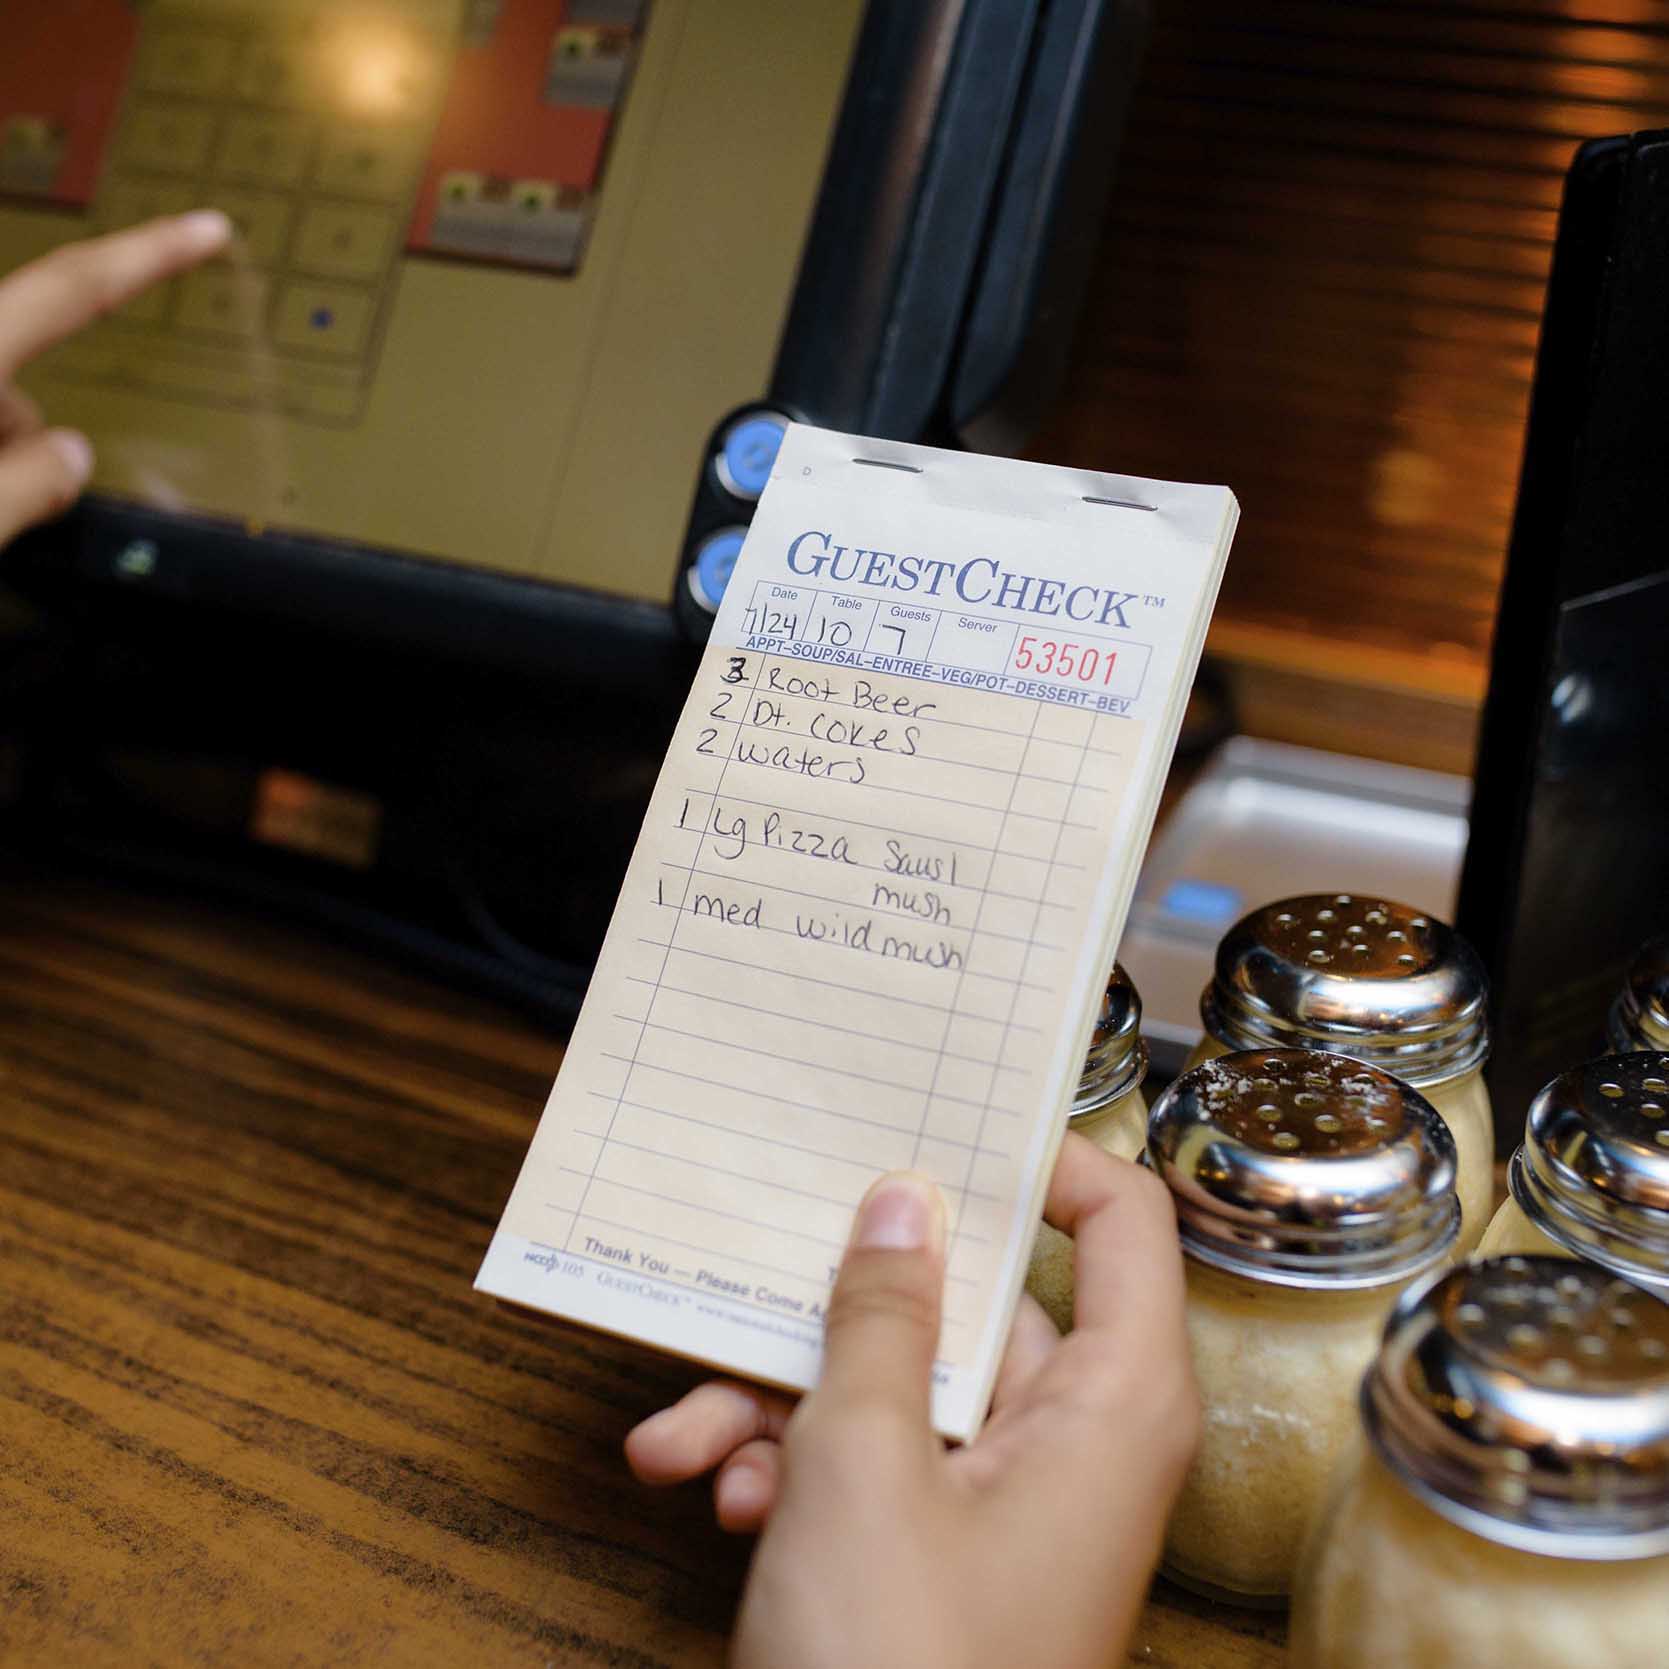 D
GUESTCHECK™
Date Table Guests Server
7/24 10 7 53501
APPT–SOUP/SAL–ENTREE–VEG/POT–DESSERT–BEV
3 Root Beer
2 Dt. cokes
2 waters
1 Lg Pizza Saus
mush
1 med wild mush
Thank You — Please Come
105 GUESTCHECK™